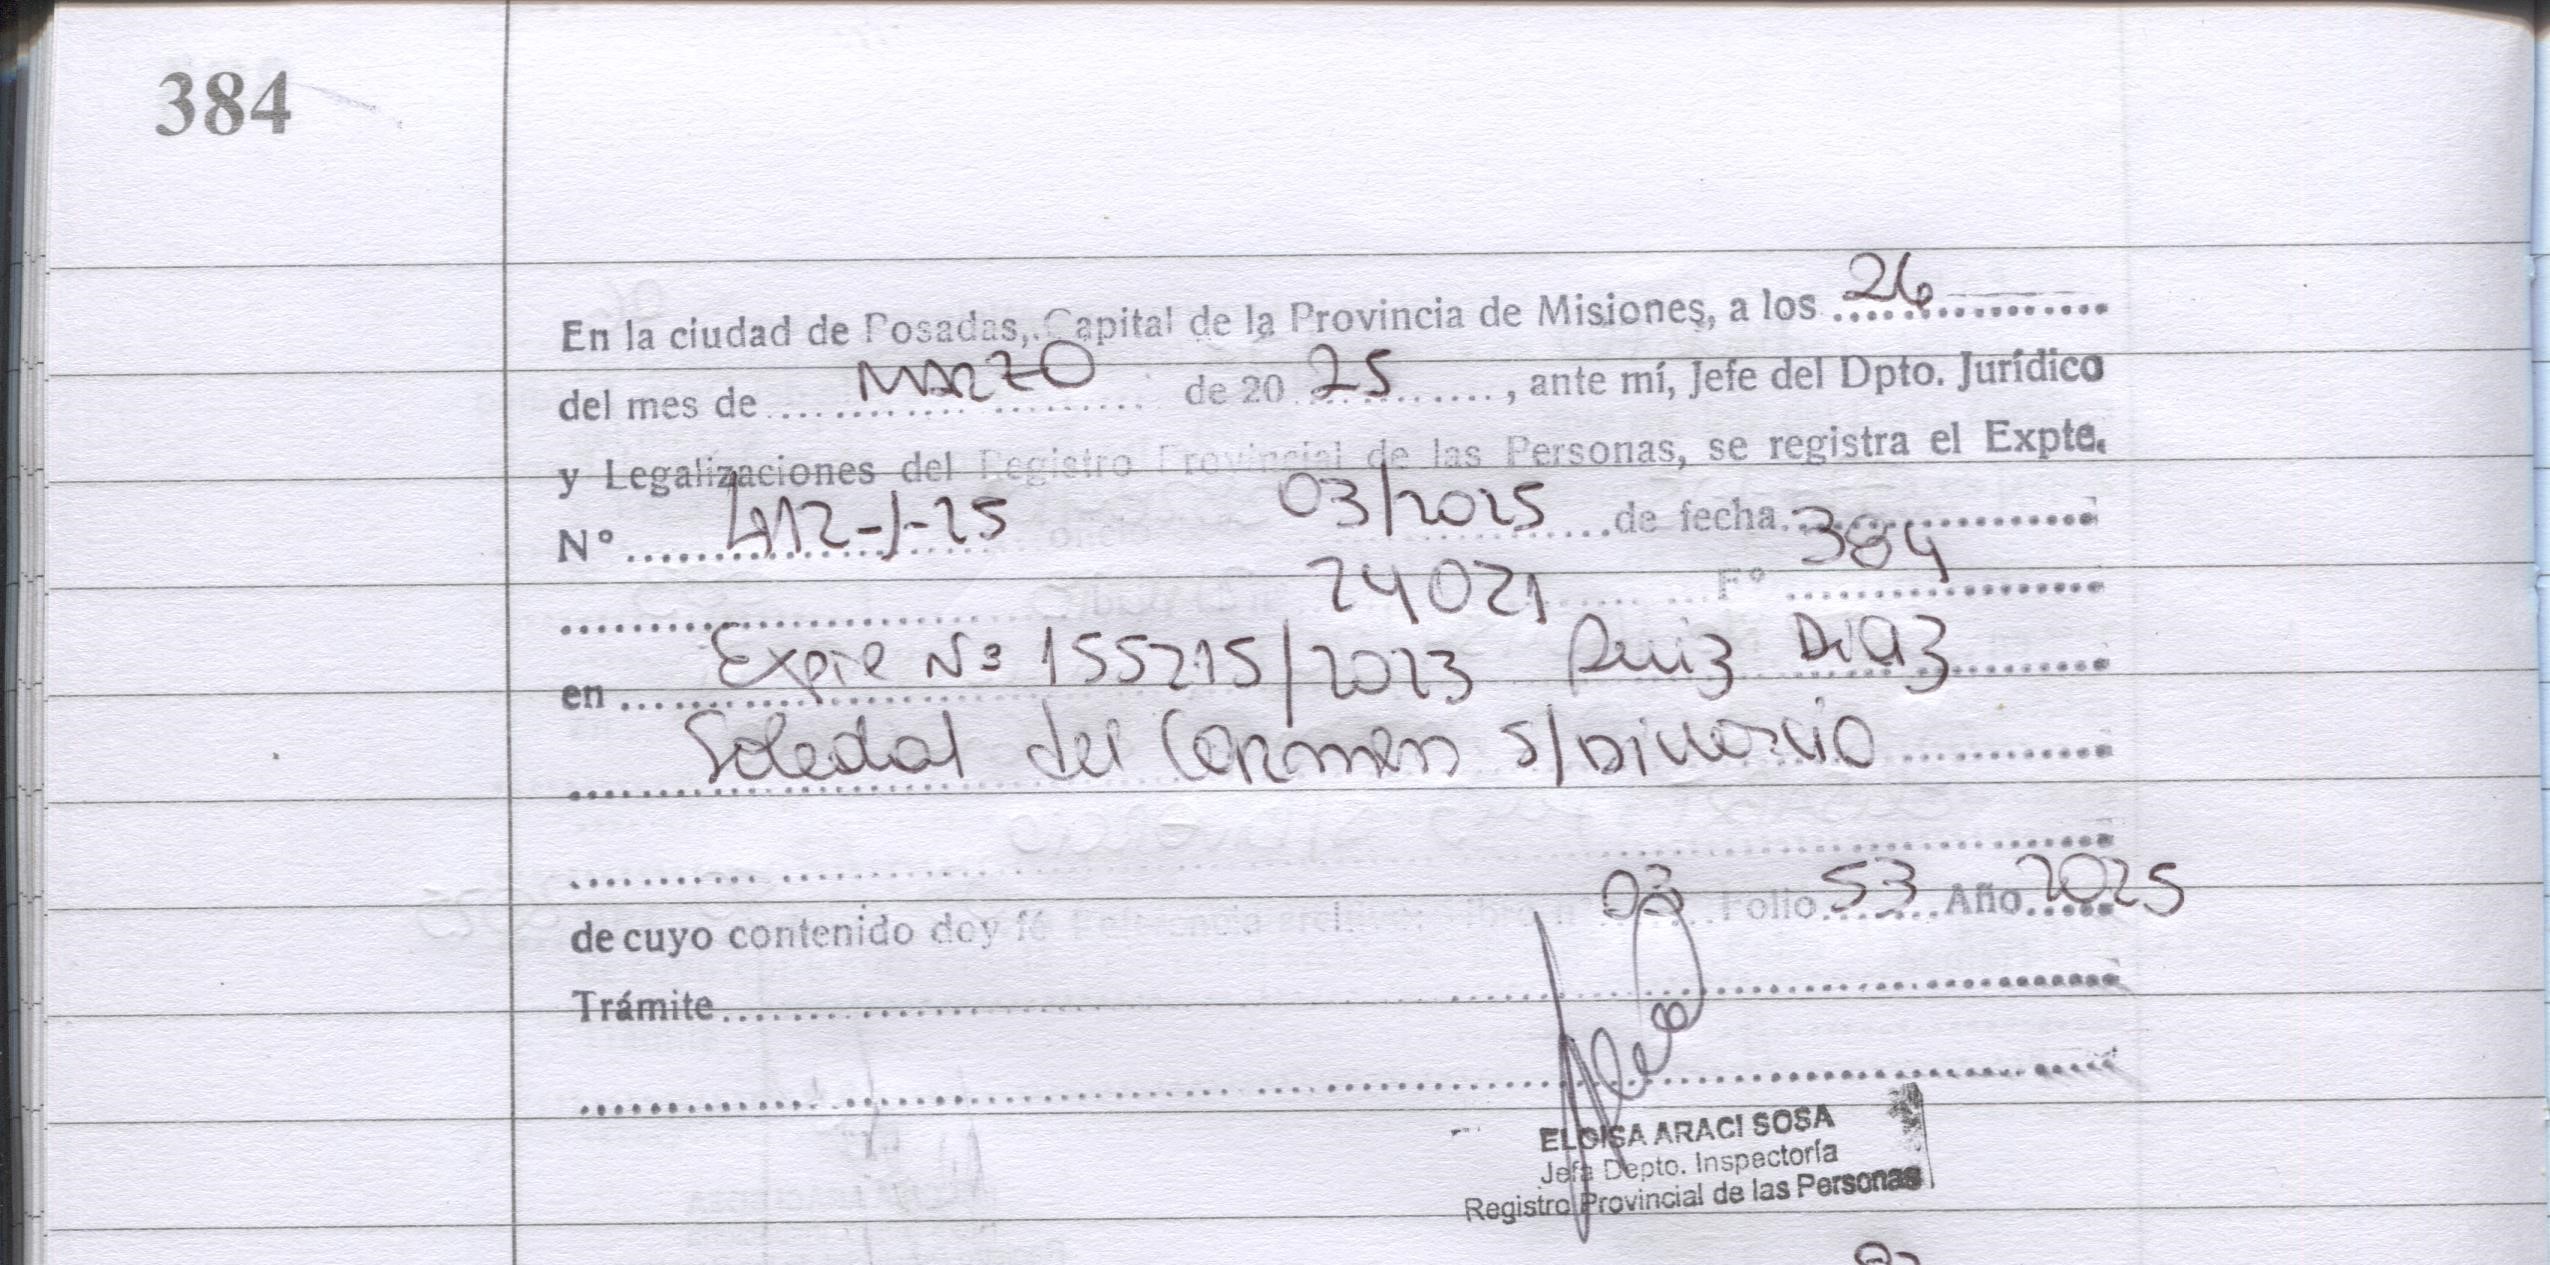 384
En la ciudad de Posadas, Capital de la Provincia de Misiones, a los 26
del mes de MARZO de 20 25, ante mí, Jefe del Dpto. Jurídico
y Legalizaciones del Registro Provincial de las Personas, se registra el Expte.
N° 412-J-25 oficio 03/2025 de fecha
24021 F° 384
en Expte N° 155215/2023 Ruiz Diaz
Soledad del Carmen s/Divorcio
de cuyo contenido doy fé 03 Folio 53 Año 2025
Trámite
ELOISA ARACI SOSA
Jefa Depto. Inspectoría
Registro Provincial de las Personas